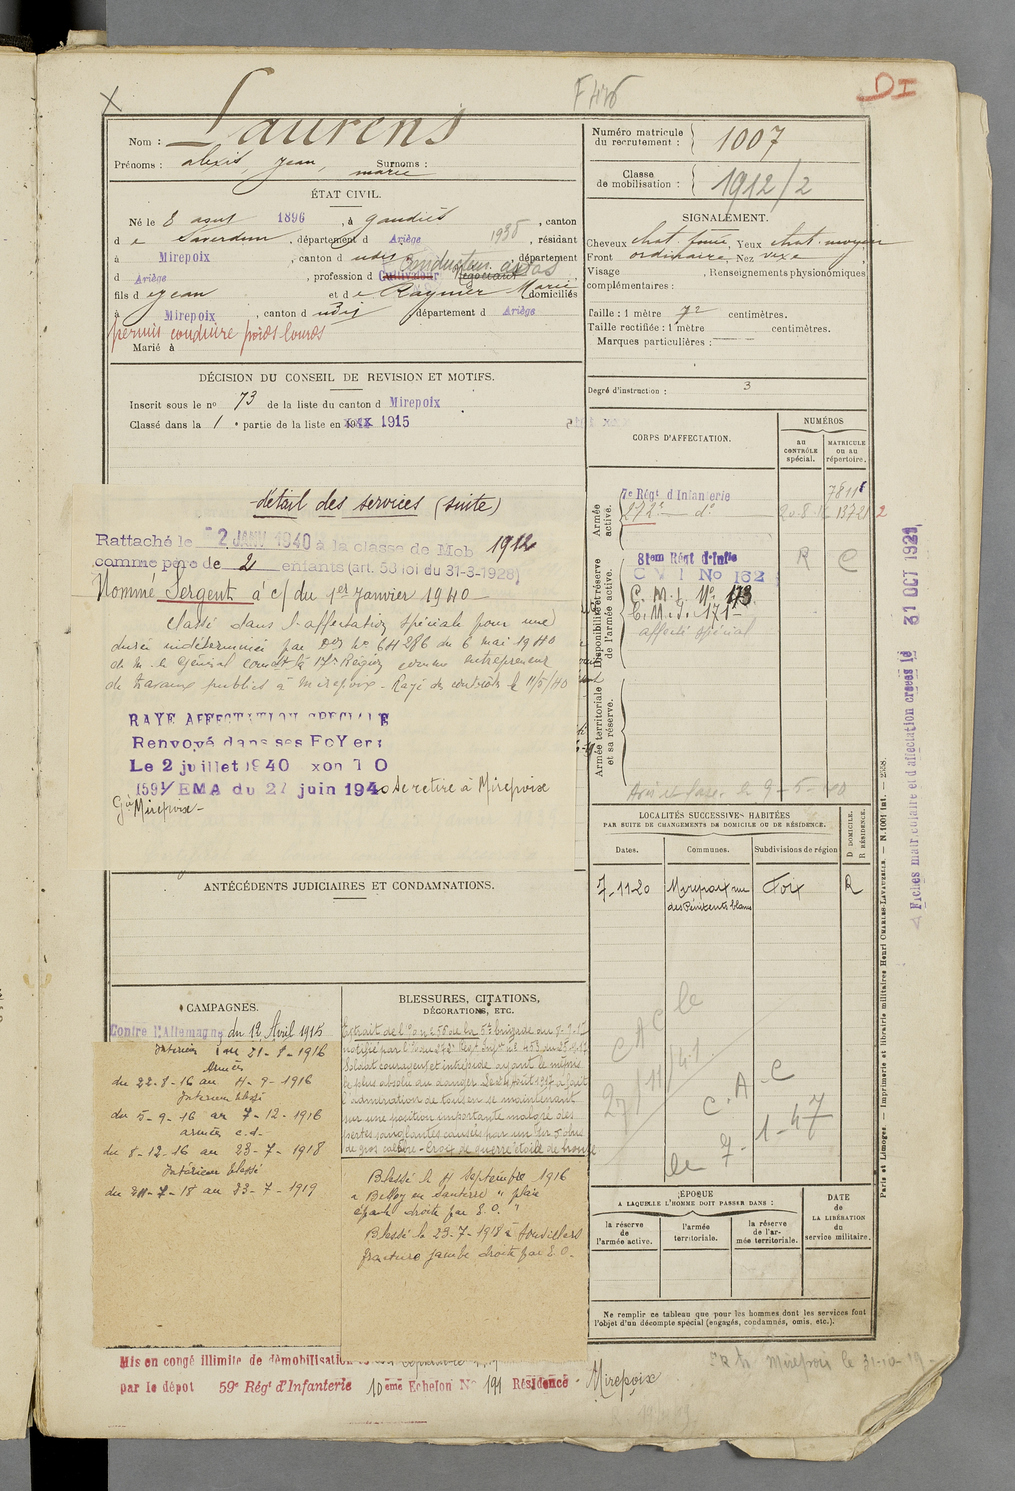 DI
Nom : Laurens
Prénoms : alexis, Jean, marie Surnoms :
Numéro matricule du recrutement : 1007
Classe de mobilisation : 1912/2
ÉTAT CIVIL.
Né le 8 août 1896, à Gaudiès, canton
d e Saverdun, département d Ariège, résidant
à Mirepoix, canton d udis, département
d Ariège, profession d Cultivateur Négociant
fils d e Jean et d e Raynier Marie domiciliés
à Mirepoix, canton d udis, département d Ariège
permis conduire poids lourds
Marié à
SIGNALEMENT.
Cheveux chat foncé, Yeux chat. moyen
Front ordinaire Nez vexe
Visage , Renseignements physionomiques
complémentaires :
Taille : 1 mètre 72 centimètres.
Taille rectifiée : 1 mètre centimètres.
Marques particulières :
Degré d'instruction : 3
DÉCISION DU CONSEIL DE REVISION ET MOTIFS.
Inscrit sous le no 73 de la liste du canton d Mirepoix
Classé dans la 1e partie de la liste en 1915
détail des services (suite)
Rattaché le 2 JANV 1940 à la classe de Mob 1912
comme père de 2 enfants (art. 58 loi du 31-3-1928)
Nommé Sergent à c/ du 1er Janvier 1940
Classé dans l'affectation spéciale pour une
durée indéterminée par Don No 64286 du 6 mai 1940
de M. le Général comdt la 17e Région comme entrepreneur
de travaux publics à Mirepoix - Rayé des contrôles le 11/5/40
RAYE AFFECTATION SPECIALE
Renvoyé dans ses FoYers
Le 2 juillet 1940 xon T O
1591/EMA du 27 juin 1940 se retire à Mirepoix
Mirepoix -
CORPS D'AFFECTATION.
NUMÉROS
AU CONTRÔLE spécial.
MATRICULE OU AU répertoire.
Armée active.
7e Régt d'Infanterie
272e do 13721
Disponibilité et réserve de l'armée active.
81em Régt d'Infie R C
C M I No 162
C. M. I. No 173
C. M. I. 171 -
affecté spécial
Armée territoriale et sa réserve.
9-5-40
LOCALITÉS SUCCESSIVES HABITÉES
PAR SUITE DE CHANGEMENTS DE DOMICILE OU DE RÉSIDENCE.
Dates. Communes. Subdivisions de région D DOMICILE. R RÉSIDENCE.
7-11-20 Mirepoix rue des Pénitents blancs Foix R
C A C le
27/11/41
C. A. C
le 7-1-47
Fiches matriculaire et d'affectation créées le 31 OCT 1929
Paris et Limoges. — Imprimerie et librairie militaires Henri CHARLES-LAVAUZELLE. — N. 1001 int. — 2358.
ANTÉCÉDENTS JUDICIAIRES ET CONDAMNATIONS.
CAMPAGNES.
Contre l'Allemagne du 12 Avril 1915
Intérieur au 21-8-1916
Armées
du 22-8-16 au 4-9-1916
Intérieur blessé
du 5-9-16 au 7-12-1916
armées c.d.
du 8-12-16 au 23-7-1918
Intérieur blessé
du 24-7-18 au 23-7-1919
BLESSURES, CITATIONS, DÉCORATIONS, ETC.
Extrait de l'O no 255 de la 5e brigade du 5-9-17
notifié par l'O du 272e Regt Infie No 453 du 25-9-17
Soldat courageux et intrépide ayant le mépris
le plus absolu du danger. Le 24 Août 1917 a fait
l'admiration de tous en se maintenant
sur une position importante malgré des
pertes sanglantes causées par un tir d'obus
de gros calibre - Croix de guerre étoile de bronze
Blessé le 4 Septembre 1916
à Belloy en Santerre " plaie
épaule droite par E. O. "
Blessé le 23-7-1918 à
fracture jambe droite par E. O.
ÉPOQUE
A LAQUELLE L'HOMME DOIT PASSER DANS :
la réserve de l'armée active.
l'armée territoriale.
la réserve de l'armée territoriale.
DATE de LA LIBÉRATION du service militaire.
Ne remplir ce tableau que pour les hommes dont les services font
l'objet d'un décompte spécial (engagés, condamnés, omis, etc.).
Mis en congé illimité de démobilisation
par le dépot 59e Régt d'Infanterie 10eme Echelon No 191 Résidence - Mirepoix
Mirepoix le 31-10-19